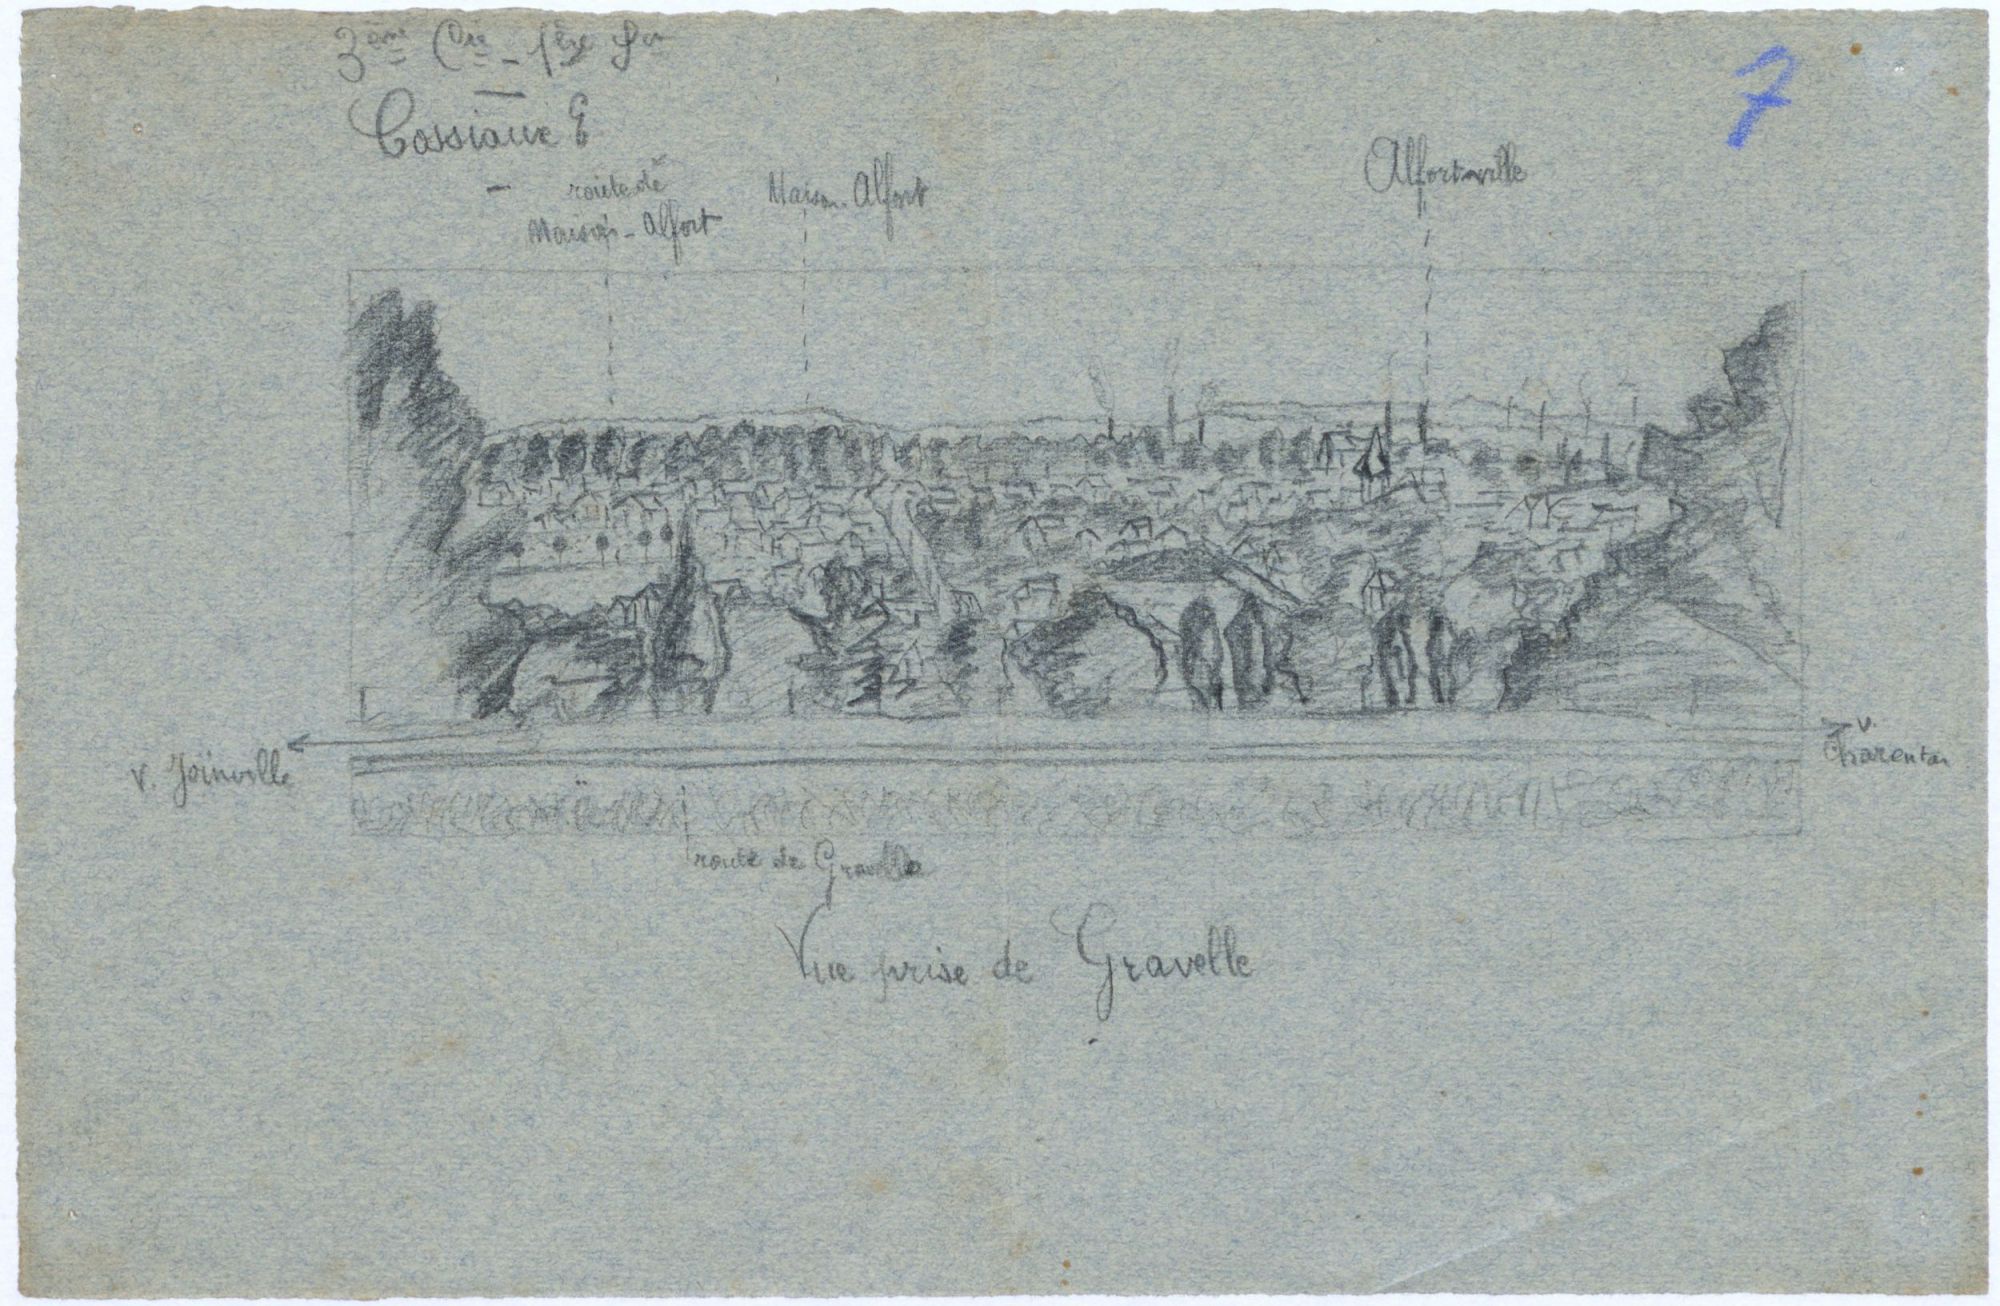 3ème Cie - 1ère Son
Cossiaux E
7
route de
Maison-Alfort
Maison-Alfort
Alfortville
v. Joinville
v.
Charenton
route de Gravelle
Vue prise de Gravelle